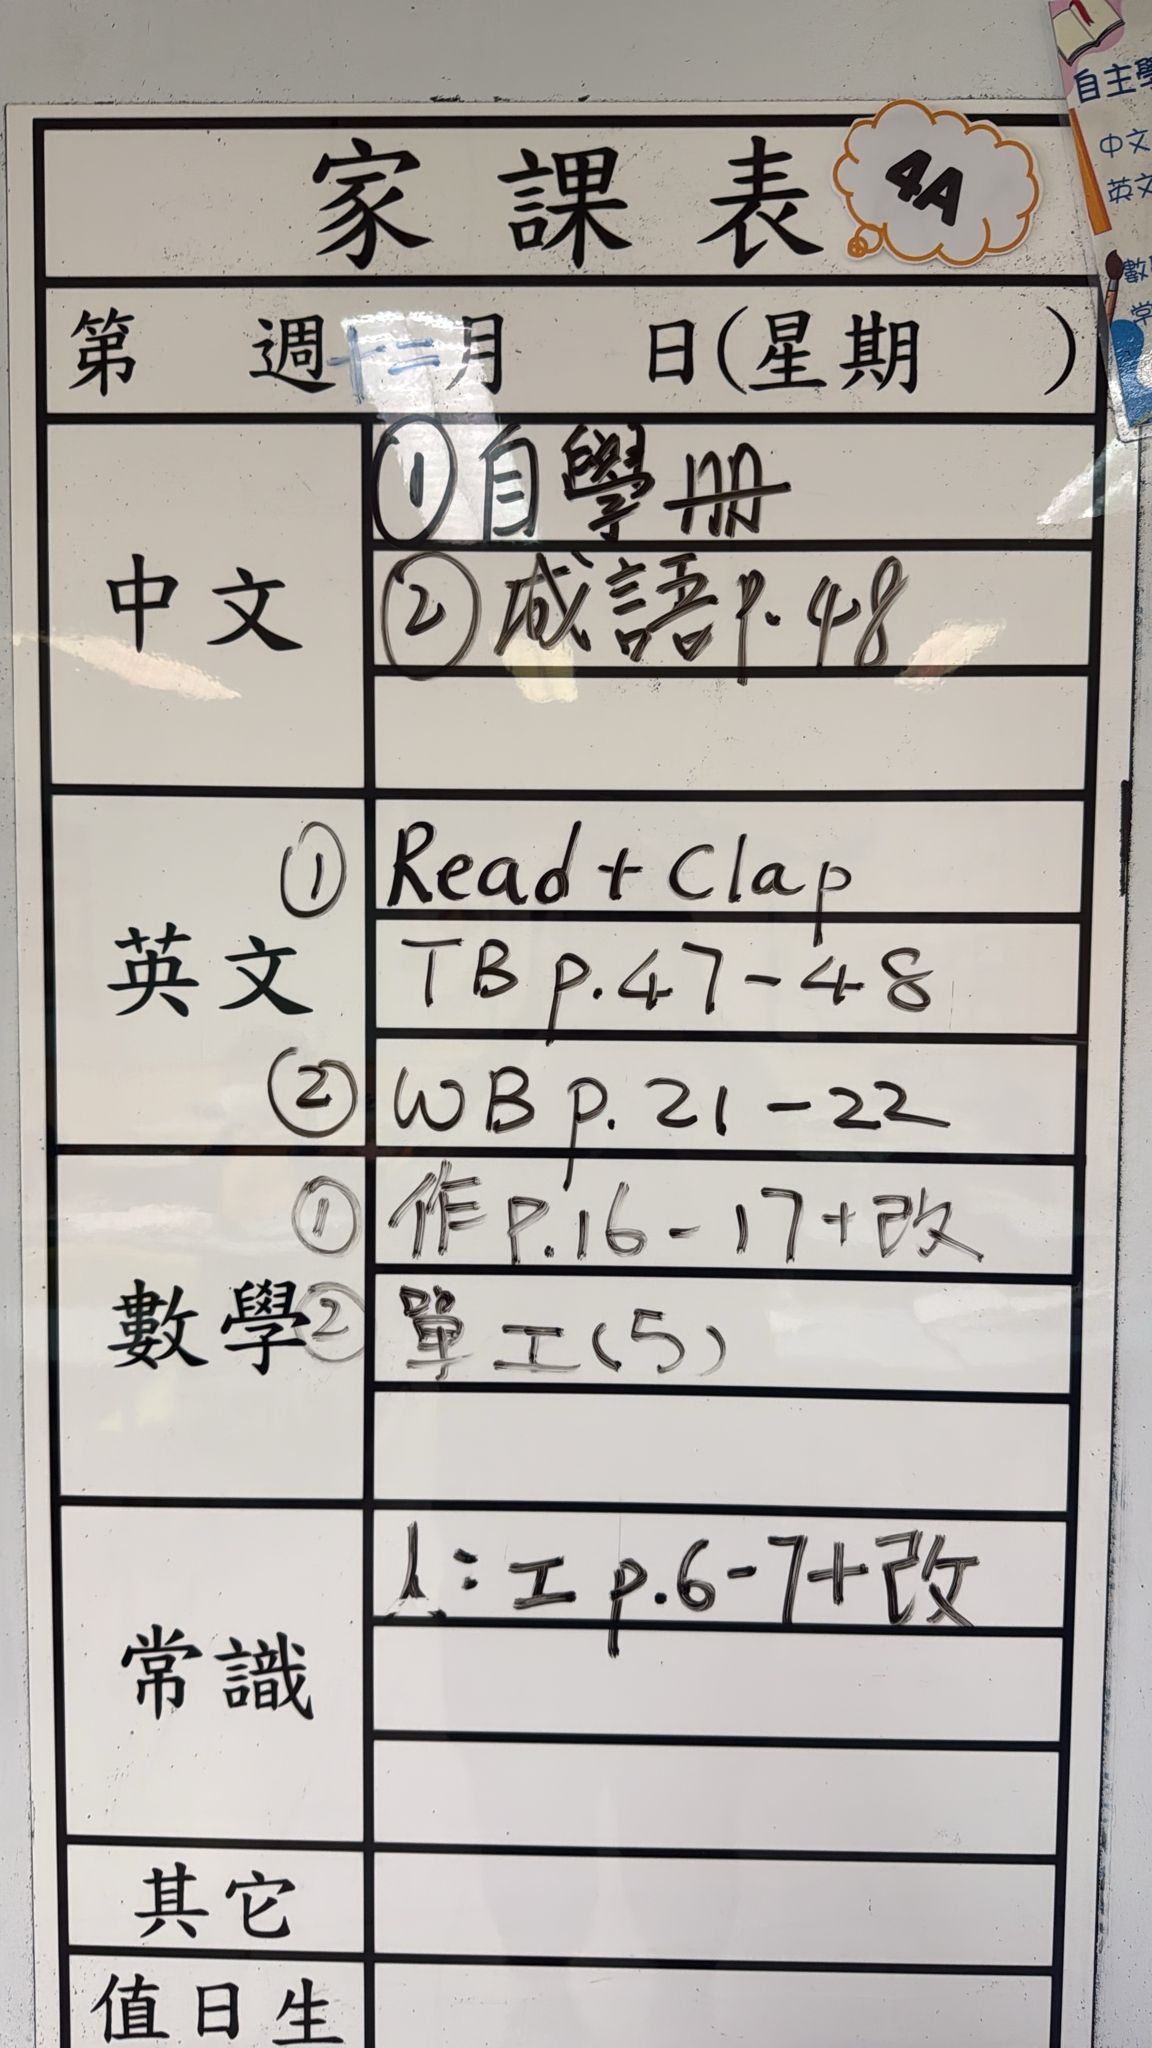 家課表 4A
第 週十二月 日(星期 )
中文
①自學冊
②成語p.48
英文
① Read + Clap
TB p.47-48
② WB p.21-22
數學
① 作p.16-17+改
② 單工(5)
常識
人:工p.6-7+改
其它
值日生
自主學
中文
英文
數
常